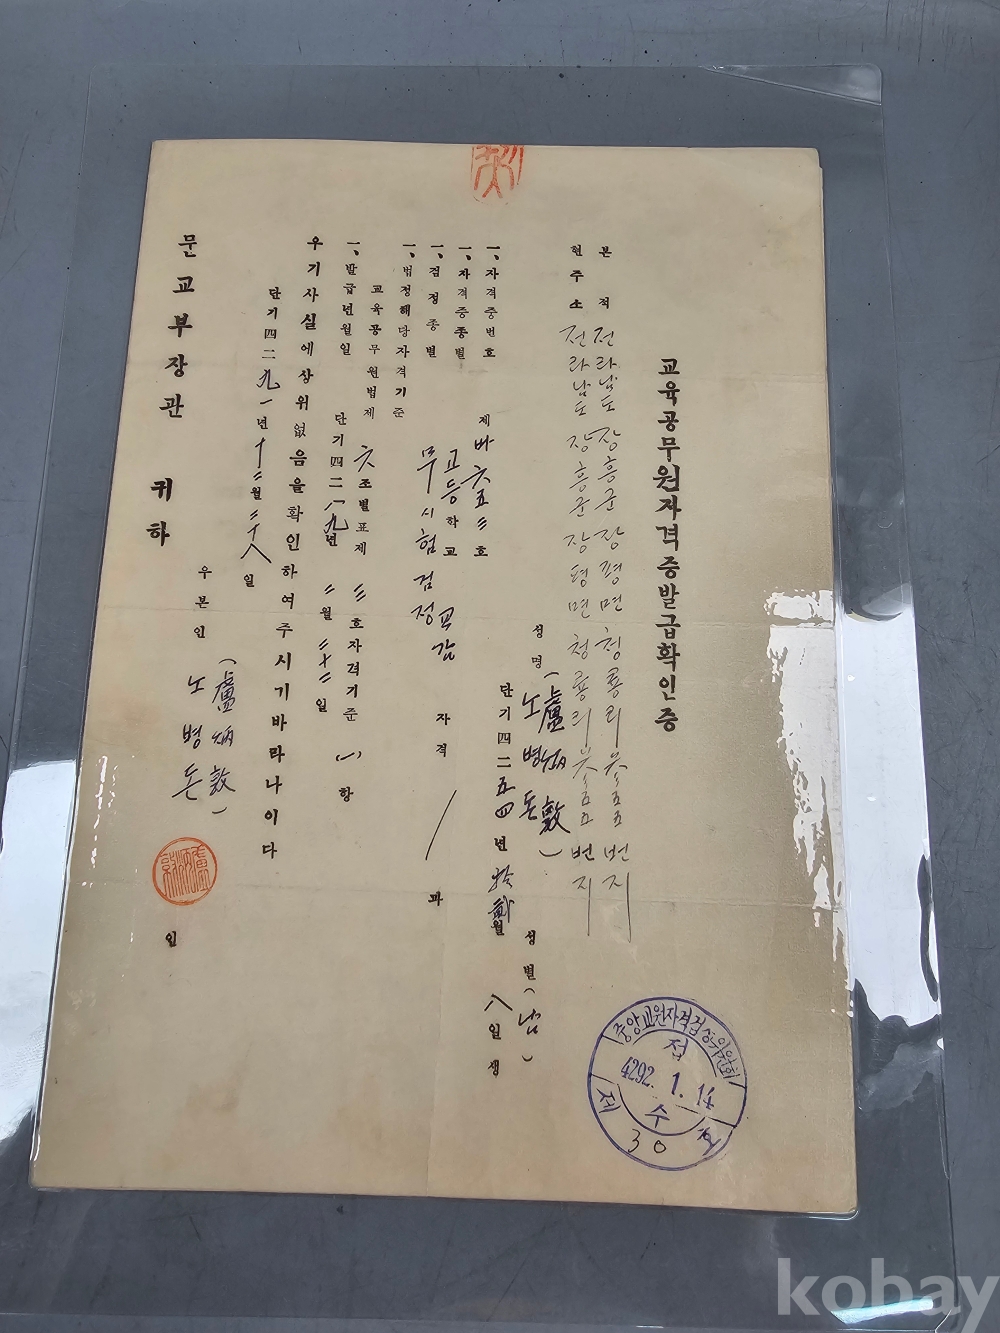 교육공무원자격증발급확인증
본적 전라남도 장흥군 장평면 청룡리 五五번지
현주소 전라남도 장흥군 장평면 청룡리 五五번지
성명 (盧炳敦 노병돈) 성별 (남)
단기四二五四年 拾貳월 八일생
一、자격증번호 제바六五三호
一、자격증종별 고등학교 교감 자격
一、검정종별 무시험검정 과
一、법정해당자격기준
교육공무원법제 六조별표제 三호자격기준 (一)항
一、발급년월일 단기四二八九년 三월 三十三일
우기사실에상위없음을확인하여주시기바라나이다
단기四二九一년 十二월 二十八일
우본인 (盧炳敦) 노병돈 인
문교부장관 귀하
중앙교원자격검정위원회
접수
4292. 1. 14
제 30 호
kobay